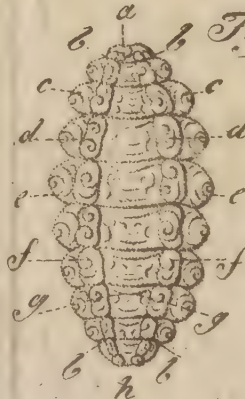 a
b b
c c
d d
e e
f f
g g
b b
h